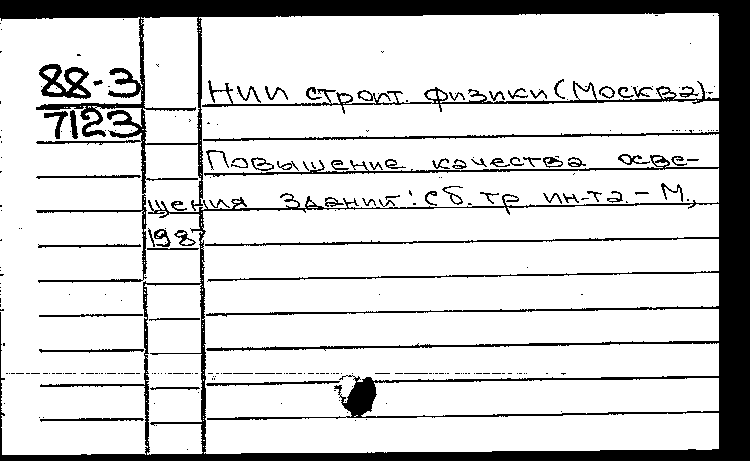 88-3
7123
НИИ строит. физики (Москва).
Повышение качества осве-
щения зданий: Сб. тр. ин-та - М.,
1987